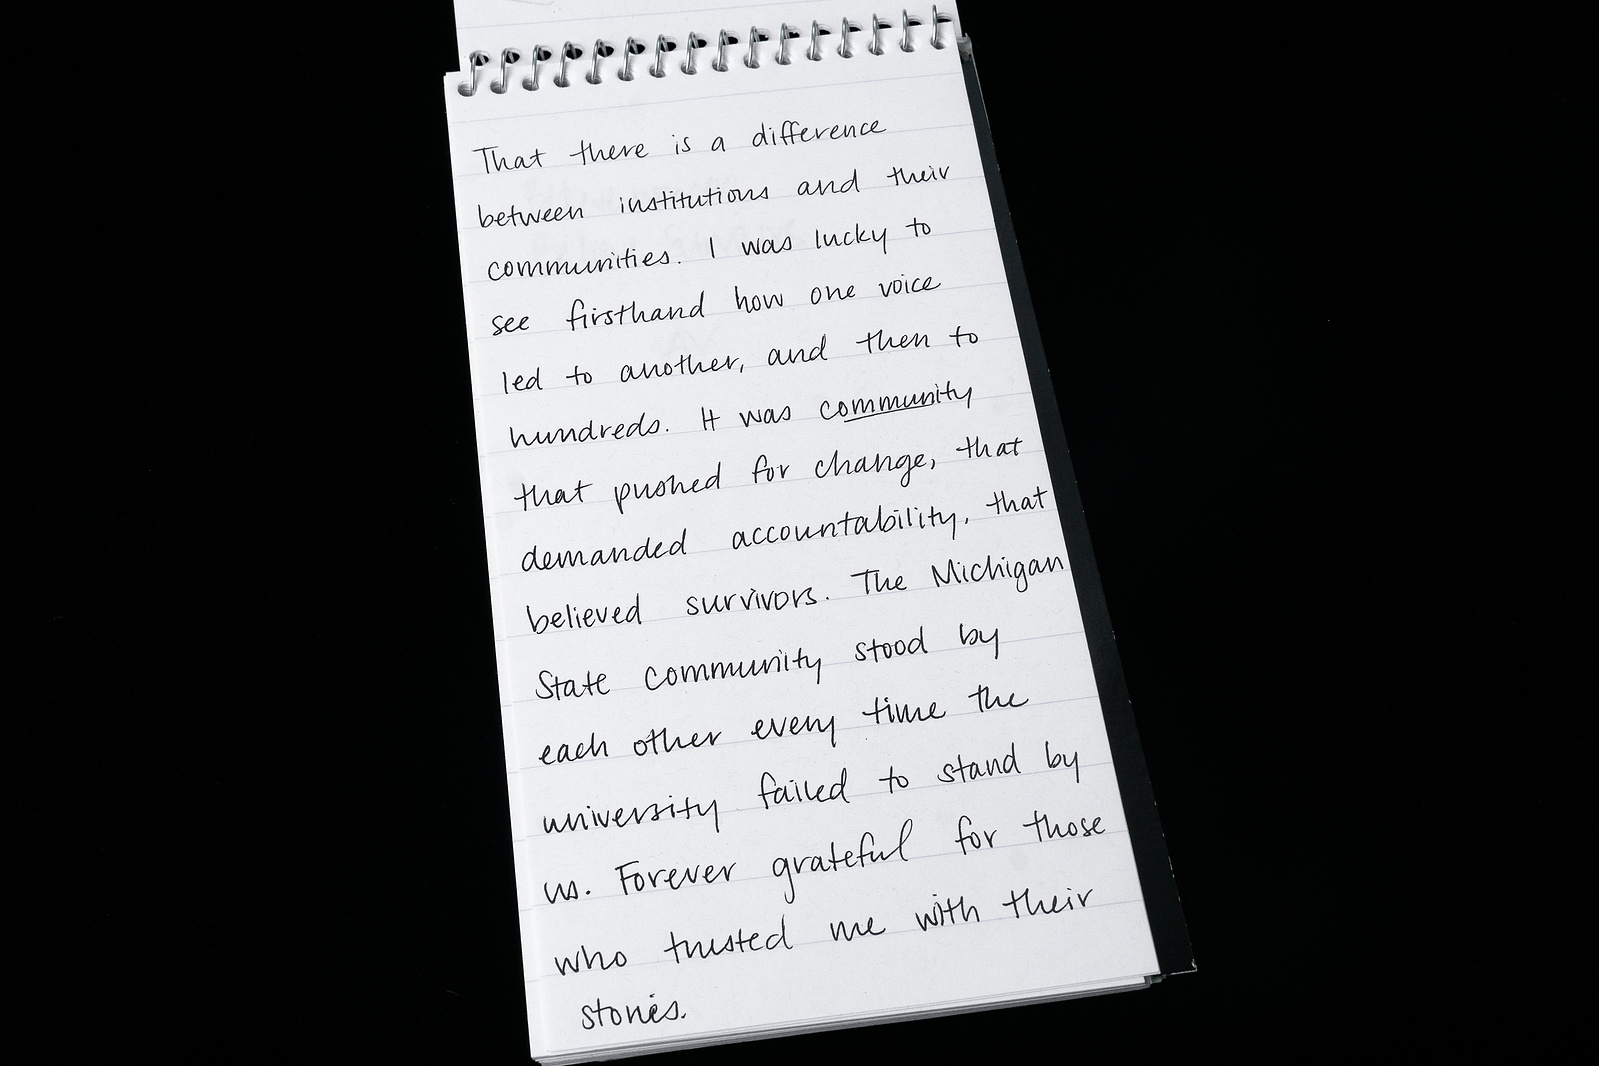 That there is a difference
between institutions and their
communities. I was lucky to
see firsthand how one voice
led to another, and then to
hundreds. It was community
that pushed for change, that
demanded accountability, that
believed survivors. The Michigan
State community stood by
each other every time the
university failed to stand by
us. Forever grateful for those
who trusted me with their
stories.